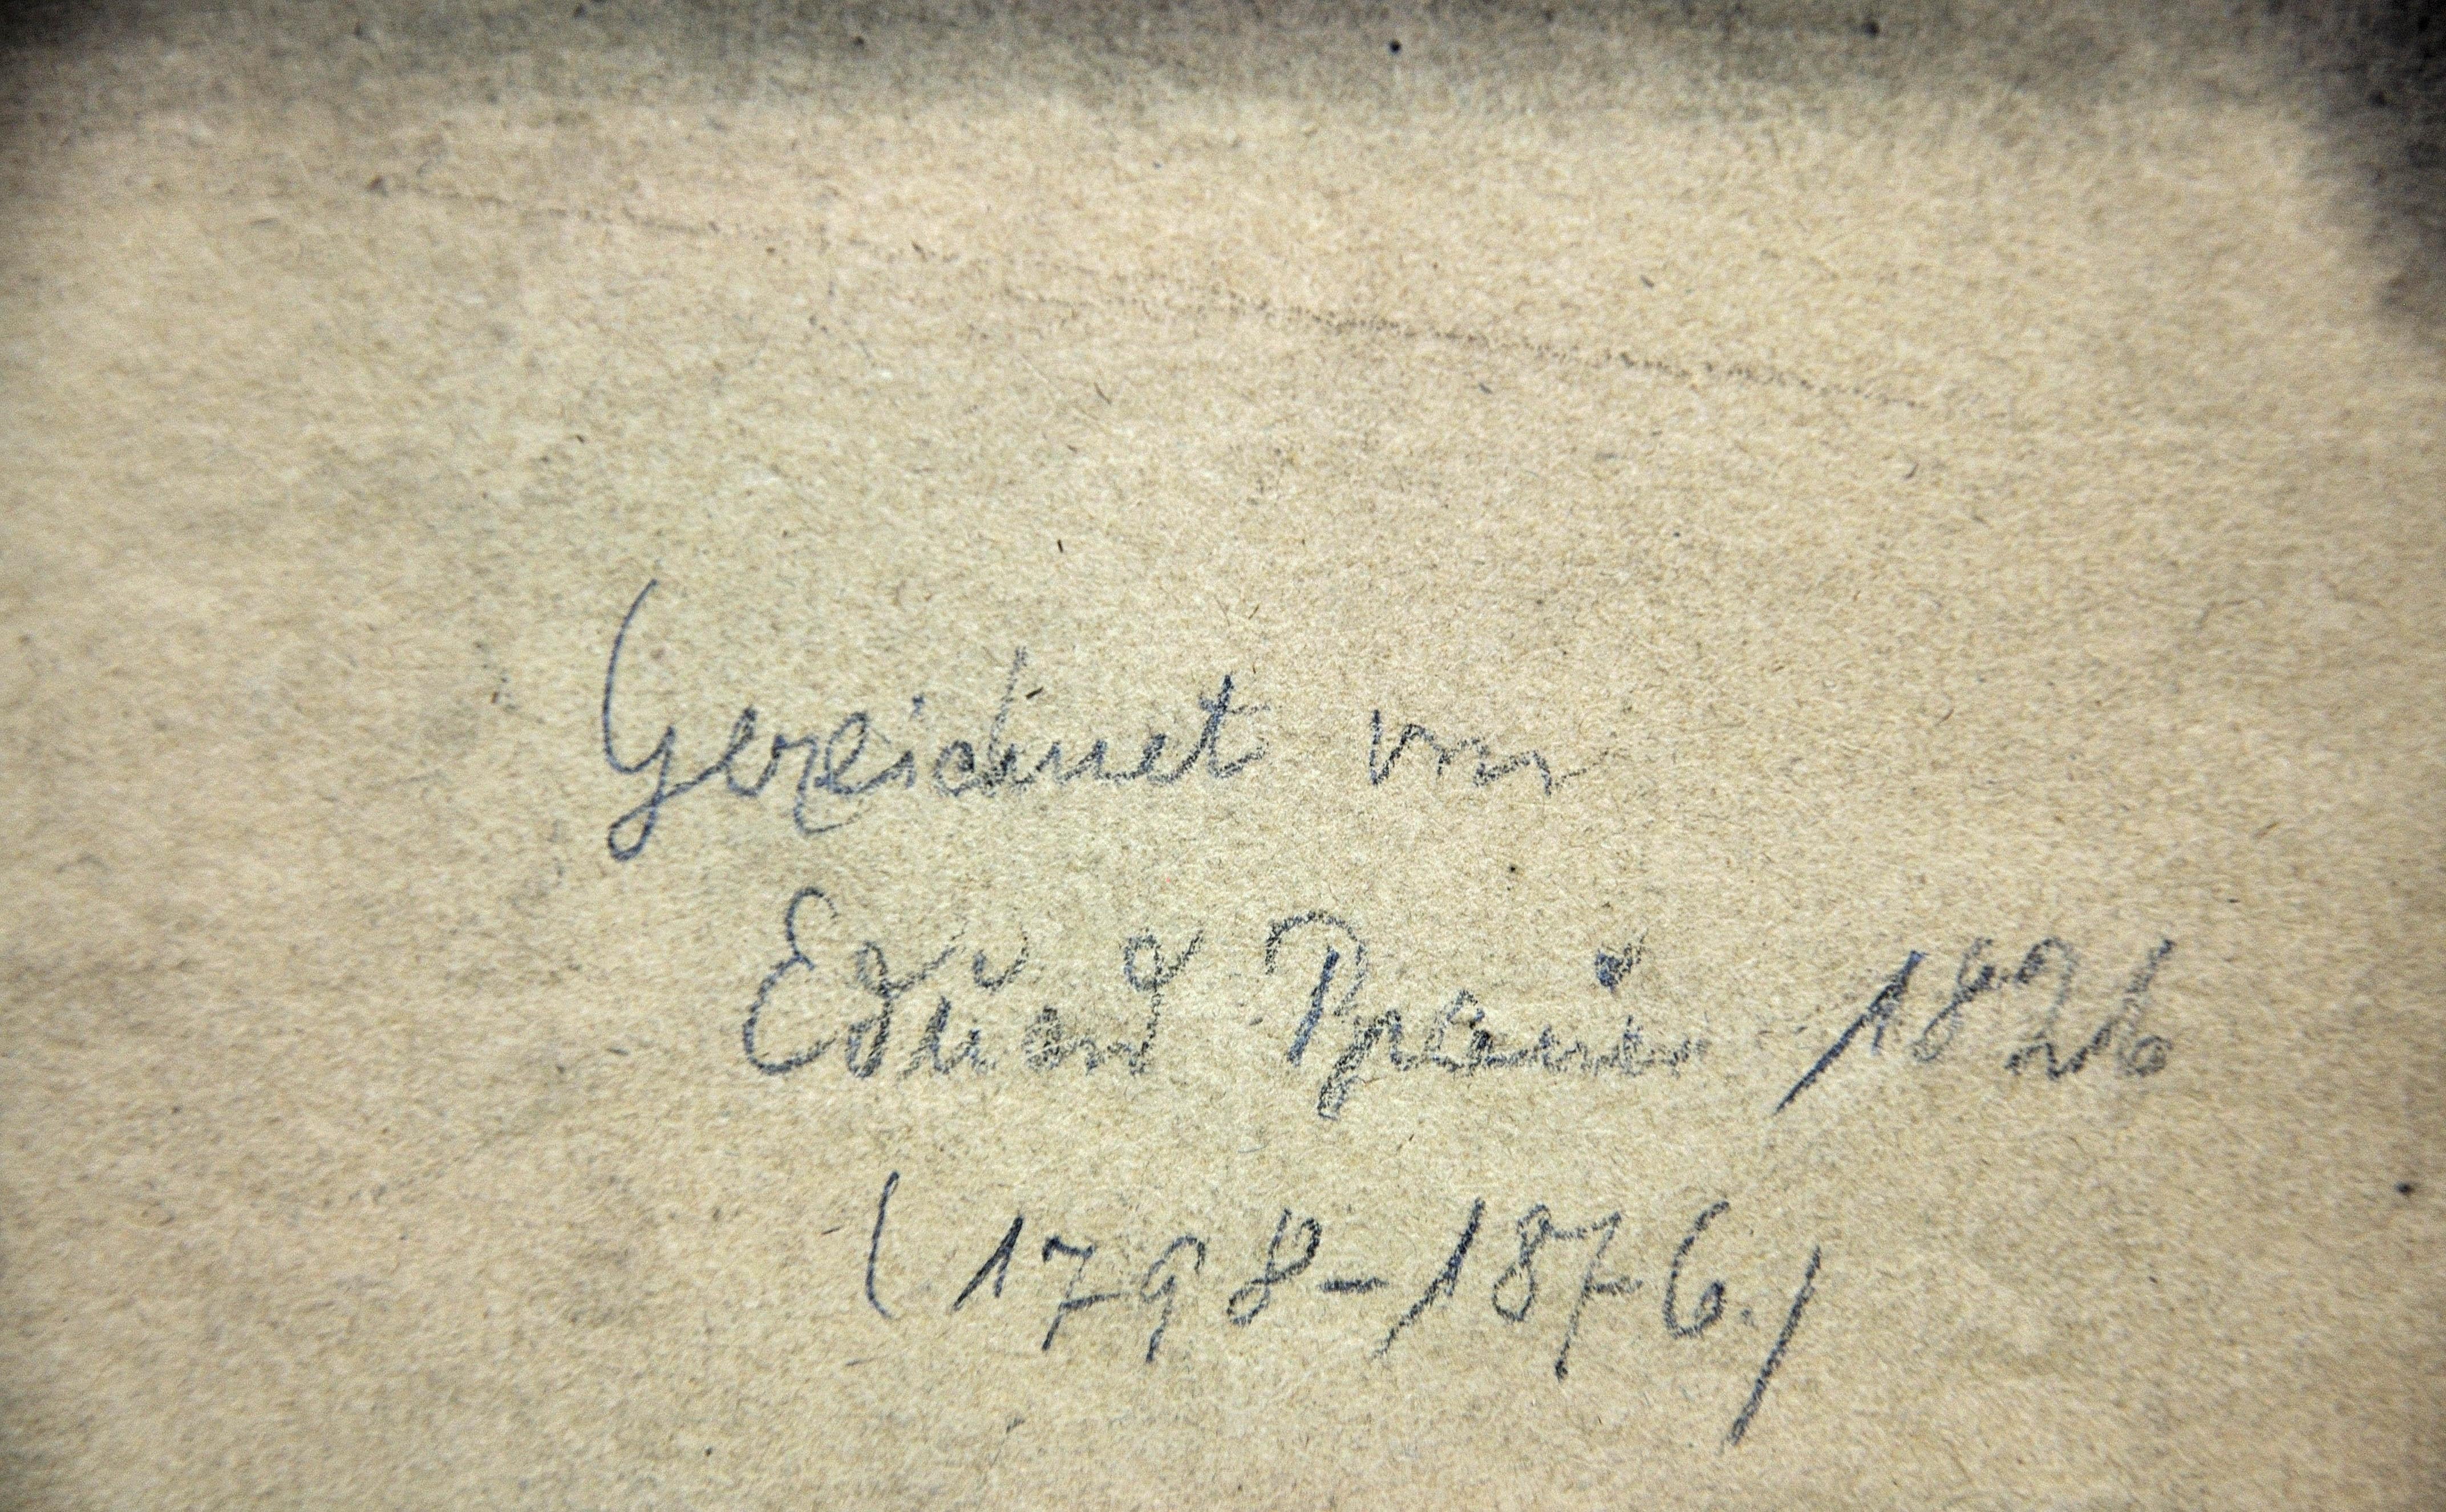 Gezeichnet von
Eduard 1826
(1798–1876.)